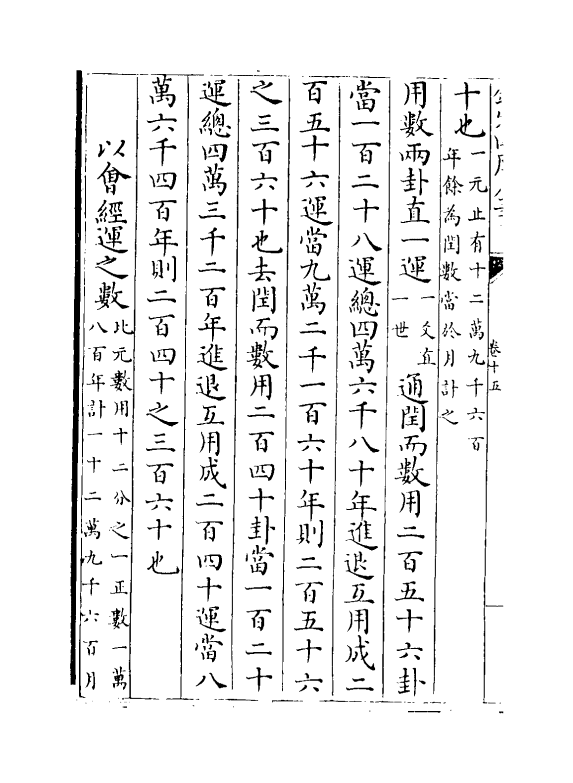 十也一元止有十二萬九千六百
年餘為閏數當於月計之
用數兩卦直一運一爻直
一世通閏而數用二百五十六卦
當一百二十八運總四萬六千八十年進退互用成二
百五十六運當九萬二千一百六十年則二百五十六
之三百六十也去閏而數用二百四十卦當一百二十
運總四萬三千二百年進退互用成二百四十運當八
萬六千四百年則二百四十之三百六十也
以會經運之數比元數用十二分之一正數一萬
八百年計一十二萬九千六百月
卷十五